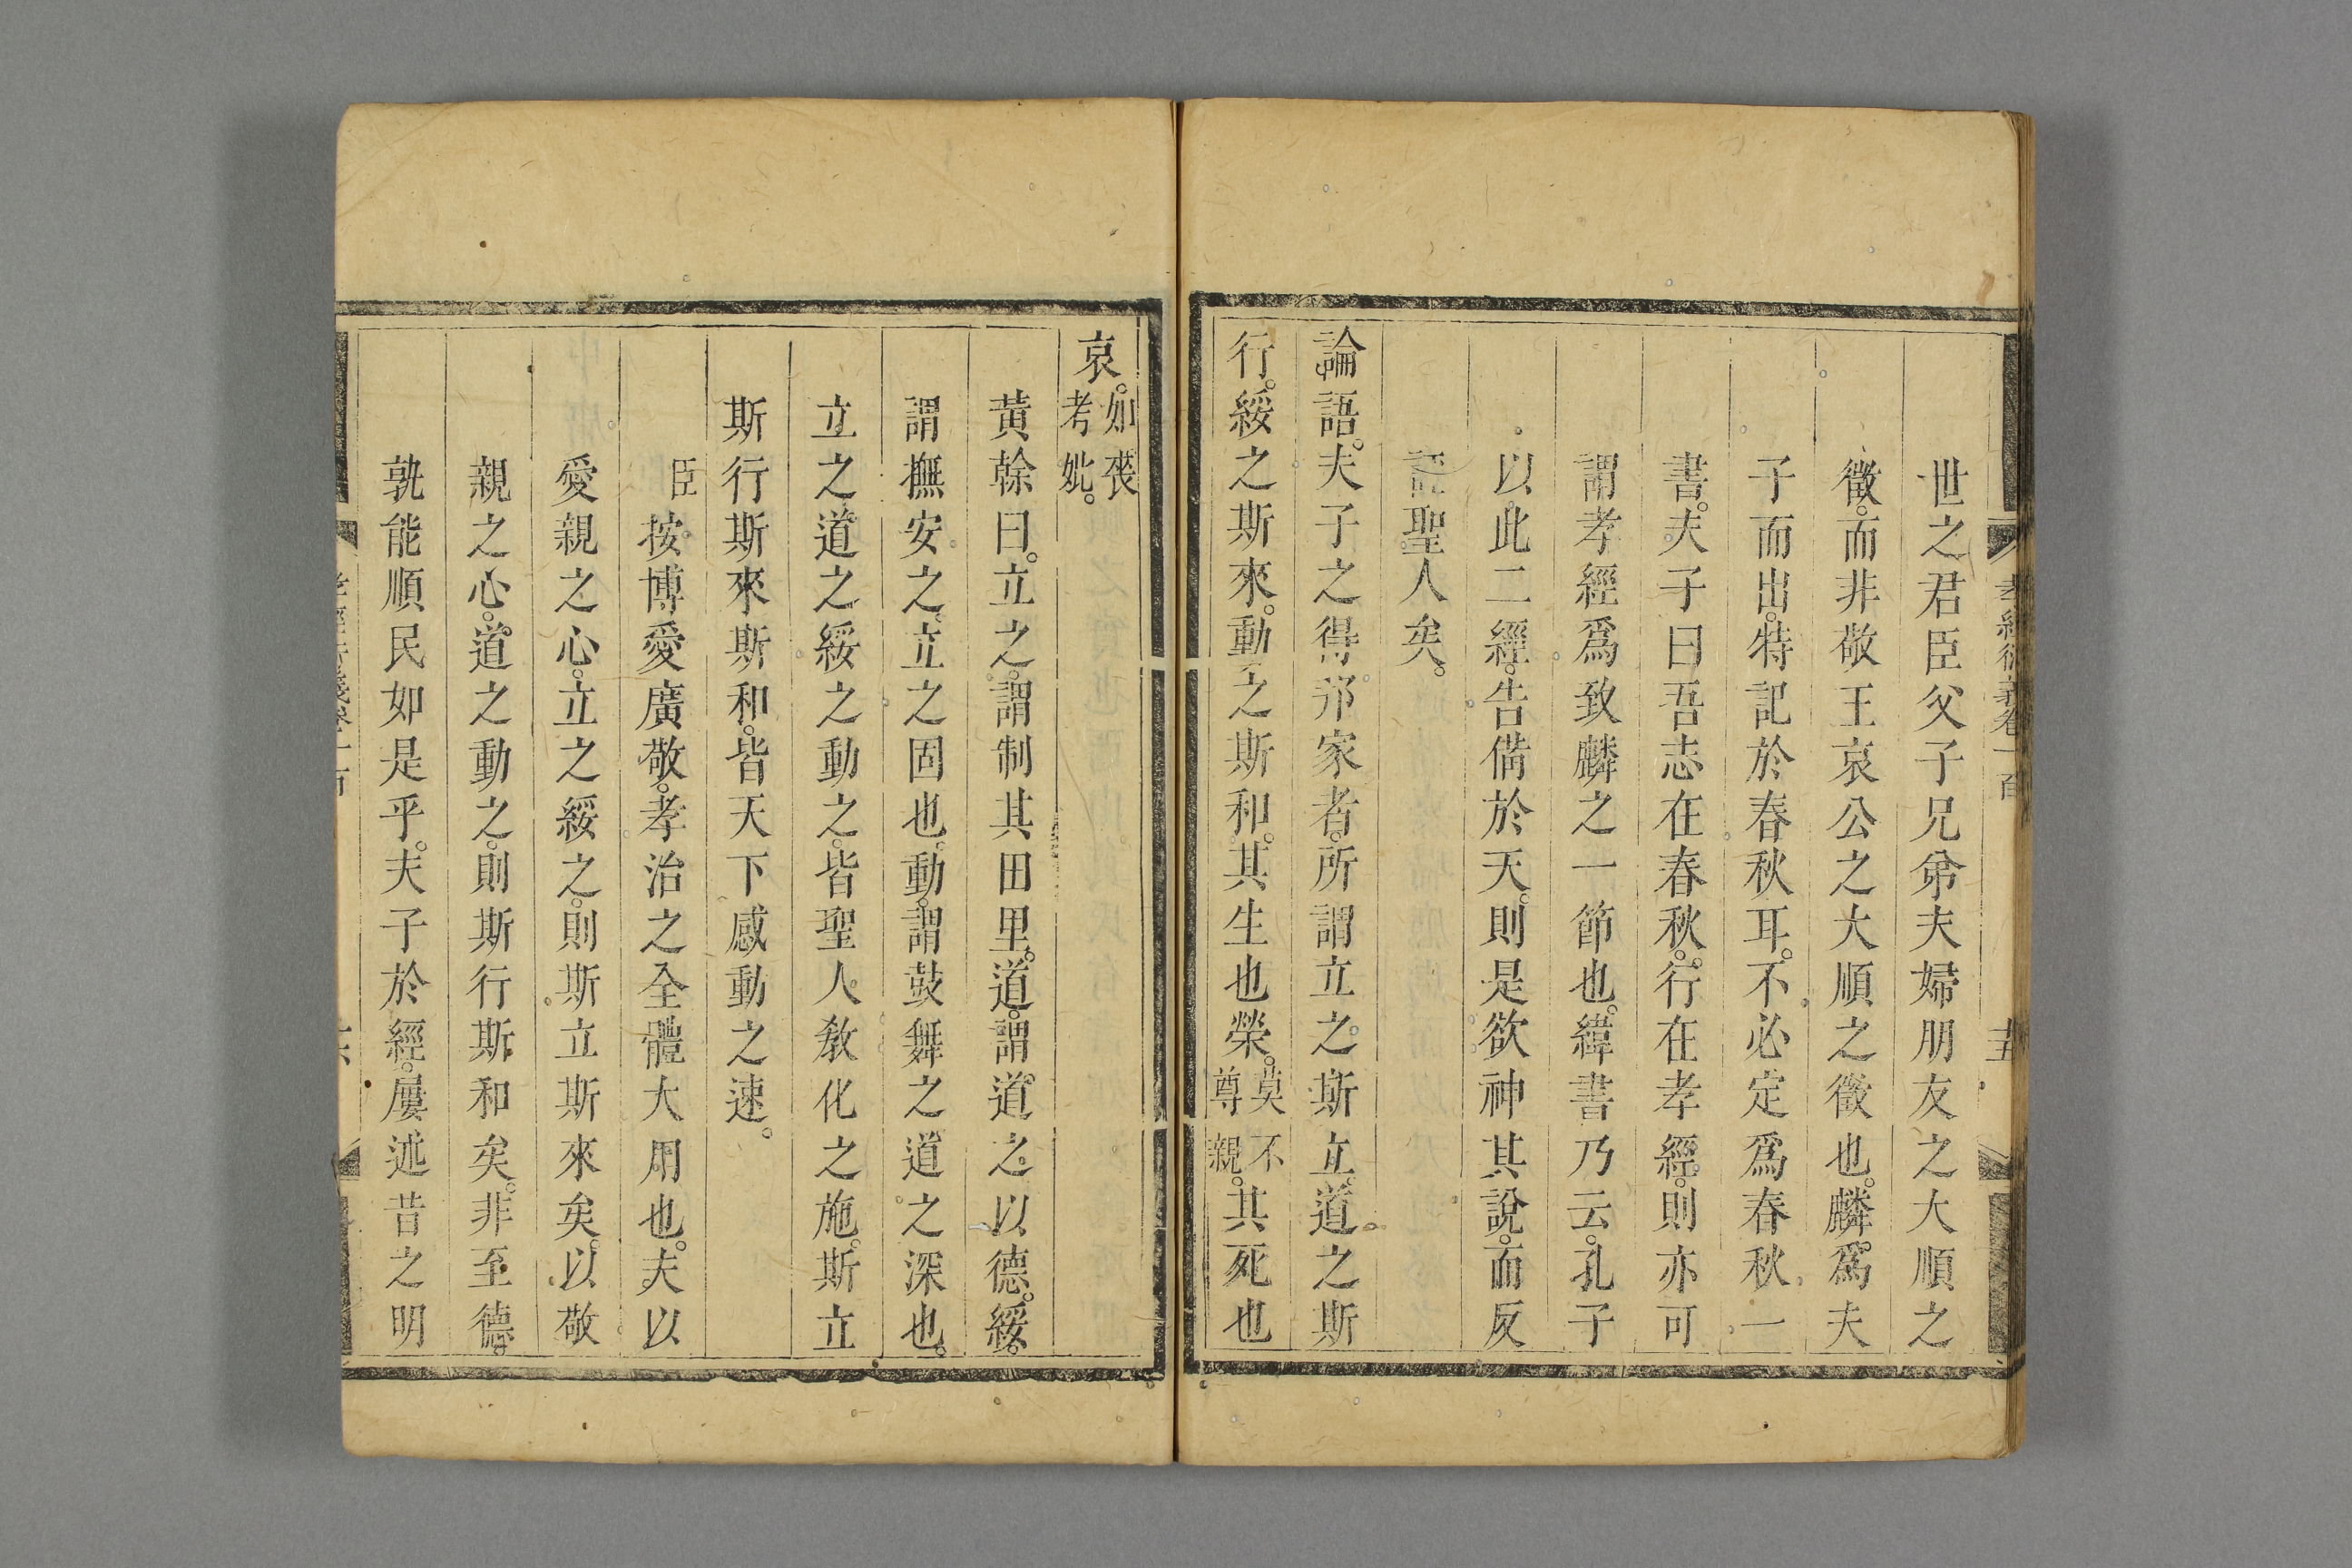 孝經衍義卷一百
世之君臣父子兄弟夫婦朋友之大順之
徵。而非敬王哀公之大順之徵也。麟爲夫
子而出。特記於春秋耳。不必定爲春秋一
書。夫子曰吾志在春秋。行在孝經。則亦可
謂孝經爲致麟之一節也。緯書乃云。孔子
以此二經。告備於天。則是欲神其說。而反
誣聖人矣。
論語。夫子之得邦家者。所謂立之斯立。道之斯
行。綏之斯來。動之斯和。其生也榮。莫不尊親。其死也
哀。如喪考妣。
黃榦曰。立之。謂制其田里。道。謂道之以德。綏。
謂撫安之。立之固也。動。謂鼓舞之道之深也。
立之道之綏之動之。皆聖人教化之施。斯立
斯行斯來斯和。皆天下感動之速。
臣按博愛廣敬。孝治之全體大用也。夫以
愛親之心。立之綏之。則斯立斯來矣。以敬
親之心。道之動之。則斯行斯和矣。非至德。
孰能順民如是乎。夫子於經。屢述昔之明